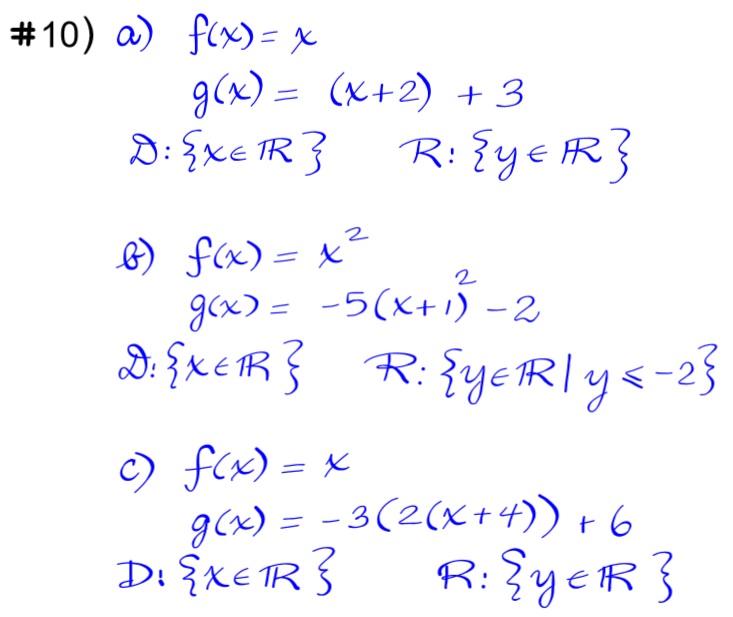 #10) a) f(x) = x
g(x) = (x+2) + 3
D: {x∈ℝ} R: {y∈ℝ}
b) f(x) = x²
g(x) = -5(x+1)² - 2
D: {x∈ℝ} R: {y∈ℝ| y ≤ -2}
c) f(x) = x
g(x) = -3(2(x+4)) + 6
D: {x∈ℝ} R: {y∈ℝ}